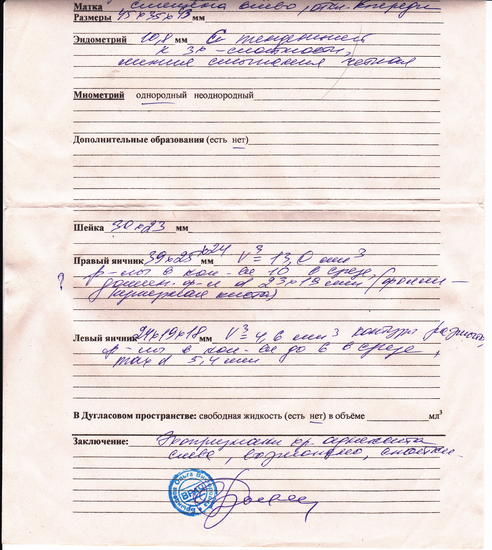 Матка смещена влево, откл. кпереди
Размеры 45х35х43 мм
Эндометрий 10,8 мм С тенденцией
к 3х-слойности,
линия смыкания четкая
Миометрий однородный неоднородный
Дополнительные образования (есть нет)
Шейка 30х23 мм
Правый яичник 39х25х24 мм V= 13,0 см3
ф-лы в кол-ве 10 в срезе,
? домин. ф-л d 23х19 мм (фолли-
кулярная киста)
Левый яичник 24х19х18 мм V= 4,6 см3 контуры
ф-лы в кол-ве до 6 в срезе,
max d 5,4 мм
В Дугласовом пространстве: свободная жидкость (есть нет) в объёме мл3
Заключение: Эхопризнаки
слева, возможно,
ВРАЧ